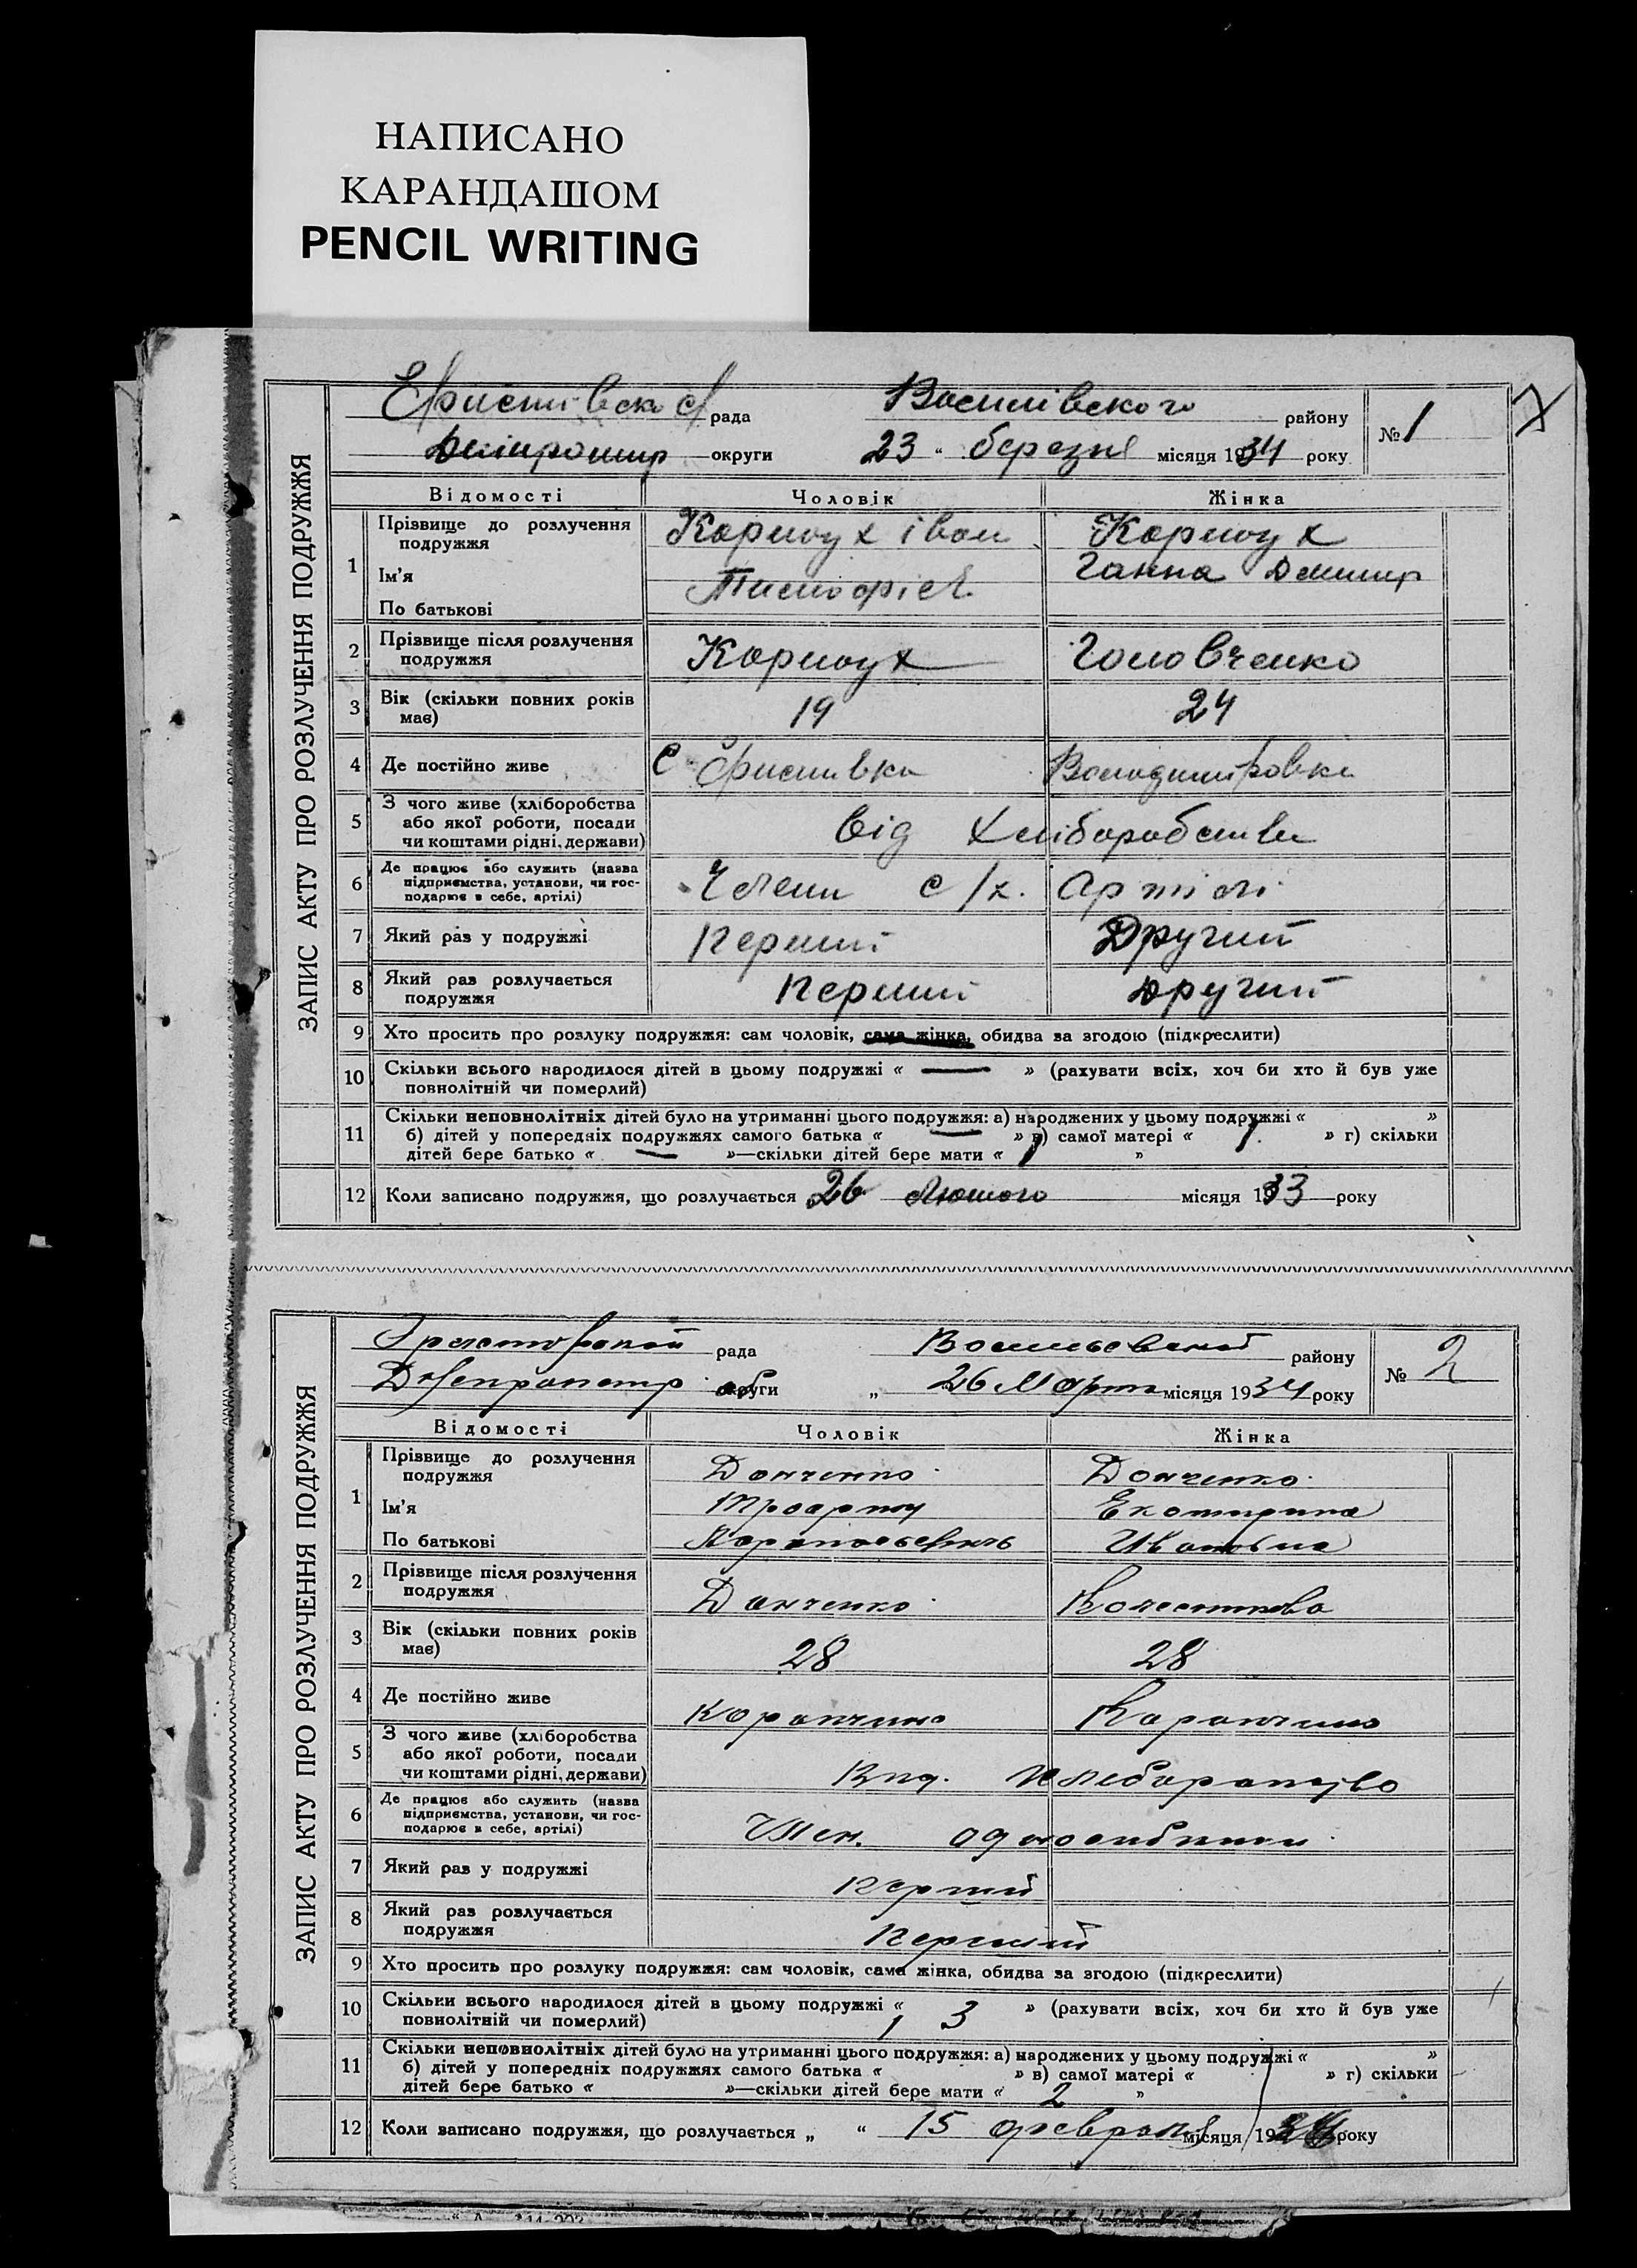 НАПИСАНО
КАРАНДАШОМ
PENCIL WRITING
ЗАПИС АКТУ ПРО РОЗЛУЧЕННЯ ПОДРУЖЖЯ
рада Василівского району № 1
округи 23 " березня місяця 1934 року
Відомості Чоловік Жінка
1 Прізвище до розлучення подружжя Іван
Ім'я Ганна
По батькові
2 Прізвище після розлучення
подружжя Головченко
3 Вік (скільки повних років
має) 19 24
4 Де постійно живе с
5 З чого живе (хліборобства
або якої роботи, посади
чи коштами рідні, держави) Від хліборобства
6 Де працює або служить (назва
підприємства, установи, чи гос-
подарює в себе, артілі) Член с/х. Артілі
7 Який раз у подружжі Перший Другий
8 Який раз розлучається
подружжя Перший Другий
9 Хто просить про розлуку подружжя: сам чоловік, сама жінка, обидва за згодою (підкреслити)
10 Скільки всього народилося дітей в цьому подружжі « — » (рахувати всіх, хоч би хто й був уже
повнолітній чи померлий)
11 Скільки неповнолітніх дітей було на утриманні цього подружжя: а) народжених у цьому подружжі « »
б) дітей у попередніх подружжях самого батька « — » в) самої матері « 1 » г) скільки
дітей бере батько « — »—скільки дітей бере мати « 1 »
12 Коли записано подружжя, що розлучається 26 Лютого місяця 1933 року
ЗАПИС АКТУ ПРО РОЗЛУЧЕННЯ ПОДРУЖЖЯ
рада району № 2
округи „ 26 Марта місяця 1934 року
Відомості Чоловік Жінка
1 Прізвище до розлучення Донченко Донченко
подружжя
Ім'я
По батькові Ивановна
2 Прізвище після розлучення
подружжя Донченко Колесникова
3 Вік (скільки повних років
має) 28 28
4 Де постійно живе
5 З чого живе (хліборобства
або якої роботи, посади
чи коштами рідні, держави)
6 Де працює або служить (назва
підприємства, установи, чи гос-
подарює в себе, артілі) Член.
7 Який раз у подружжі Перший
8 Який раз розлучається
подружжя Перший
9 Хто просить про розлуку подружжя: сам чоловік, сама жінка, обидва за згодою (підкреслити)
10 Скільки всього народилося дітей в цьому подружжі « 3 » (рахувати всіх, хоч би хто й був уже
повнолітній чи померлий)
11 Скільки неповнолітніх дітей було на утриманні цього подружжя: а) народжених у цьому подружжі « »
б) дітей у попередніх подружжях самого батька « » в) самої матері « » г) скільки
дітей бере батько « »—скільки дітей бере мати « 2 »
12 Коли записано подружжя, що розлучається „ “ 15 февраля місяця 19 року